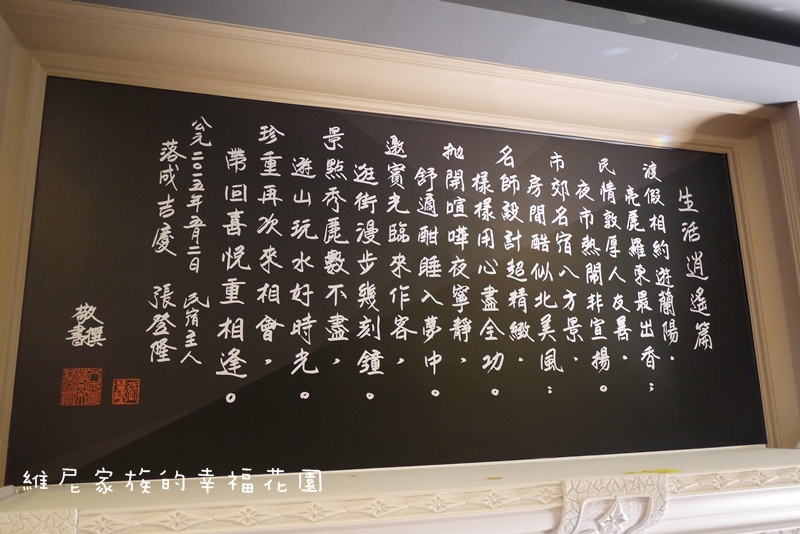 生活逍遙篇
渡假相約遊蘭陽．
亮麗羅東最出香；
民情敦厚人友善．
夜市熱鬧非宣揚。
市郊名宿八方景．
房間酷似北美風；
名師設計超精緻．
樣樣用心盡全功。
拋開喧嘩夜寧靜，
舒適酣睡入夢中。
邀賓光臨來作客，
逛街漫步幾刻鐘。
景點秀麗數不盡，
遊山玩水好時光。
珍重再次來相會，
帶回喜悅重相逢。
公元二〇二五年五月二日
落成吉慶
民宿主人
張登隆
敬撰書
維尼家族的幸福花園